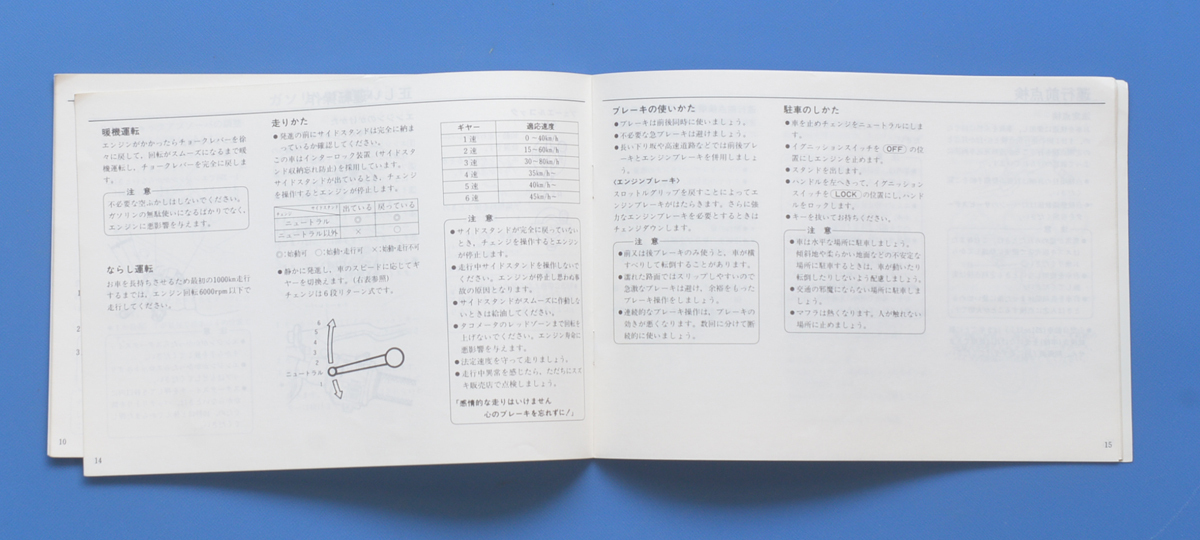 暖機運転
エンジンがかかったらチョークレバーを徐
々に戻して、回転がスムーズになるまで暖
機運転し、チョークレバーを完全に戻しま
す。
注意
不必要な空ぶかしはしないでください。
ガソリンの無駄使いになるばかりでなく、
エンジンに悪影響を与えます。
ならし運転
お車を長持ちさせるため最初の1000km走行
するまでは、エンジン回転6000rpm以下で
走行してください。
10
14
走りかた
●発進の前にサイドスタンドは完全に納ま
っているか確認してください。
この車はインターロック装置（サイドスタ
ンド収納忘れ防止）を採用しています。
サイドスタンドが出ているとき、チェンジ
を操作するとエンジンが停止します。
サイドスタンド
チェンジ
出ている 戻っている
ニュートラル ◎ ◎
ニュートラル以外 × ○
◎:始動可 ○:始動・走行可 ×:始動・走行不可
●静かに発進し、車のスピードに応じてギ
ヤーを切換えます。（右表参照）
チェンジは6段リターン式です。
6
5
4
3
2
ニュートラル
1
ギヤー 適応速度
1速 0～40km/h
2速 15～60km/h
3速 30～80km/h
4速 35km/h～
5速 40km/h～
6速 45km/h～
注意
●サイドスタンドが完全に戻っていない
とき、チェンジを操作するとエンジン
が停止します。
●走行中サイドスタンドを操作しないで
ください。エンジンが停止し思わぬ事
故の原因となります。
●サイドスタンドがスムーズに作動しな
いときは給油してください。
●タコメータのレッドゾーンまで回転を
上げないでください。エンジン寿命に
悪影響を与えます。
●法定速度を守って走りましょう。
●走行中異常を感じたら、ただちにスズ
キ販売店で点検しましょう。
「感情的な走りはいけません
心のブレーキを忘れずに！」
ブレーキの使いかた
●ブレーキは前後同時に使いましょう。
●不必要な急ブレーキは避けましょう。
●長い下り坂や高速道路などでは前後ブレ
ーキとエンジンブレーキを併用しましょ
う。
〈エンジンブレーキ〉
スロットルグリップを戻すことによってエ
ンジンブレーキがはたらきます。さらに強
力なエンジンブレーキを必要とするときは
チェンジダウンします。
注意
●前又は後ブレーキのみ使うと、車が横
すべりして転倒することがあります。
●濡れた路面ではスリップしやすいので
急激なブレーキは避け、余裕をもった
ブレーキ操作をしましょう。
●連続的なブレーキ操作は、ブレーキの
効きが悪くなります。数回に分けて断
続的に使いましょう。
駐車のしかた
●車を止めチェンジをニュートラルにしま
す。
●イグニッションスイッチを OFF の位
置にしエンジンを止めます。
●スタンドを出します。
●ハンドルを左へきって、イグニッション
スイッチを LOCK の位置にし、ハンド
ルをロックします。
●キーを抜いてお待ちください。
注意
●車は水平な場所に駐車しましょう。
傾斜地や柔らかい地面などの不安定な
場所に駐車するときは、車が動いたり
転倒したりしないよう配慮しましょう。
●交通の邪魔にならない場所に駐車しま
しょう。
●マフラは熱くなります。人が触れない
場所に止めましょう。
15